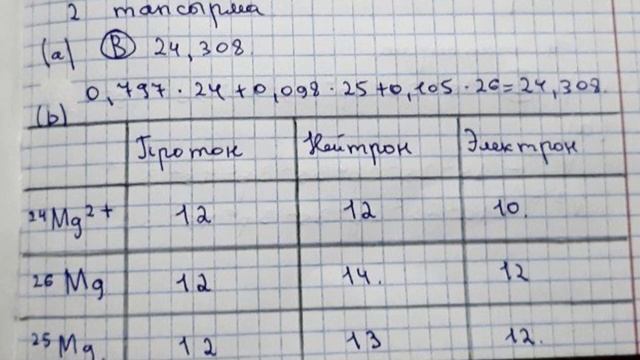 2 тапсырма
(a) (B) 24,308
0,797 · 24 + 0,098 · 25 + 0,105 · 26 = 24,308.
(b)
Протон Нейтрон Электрон
²⁴Mg²⁺ 12 12 10.
²⁶Mg 12 14. 12
²⁵Mg 12 13 12.